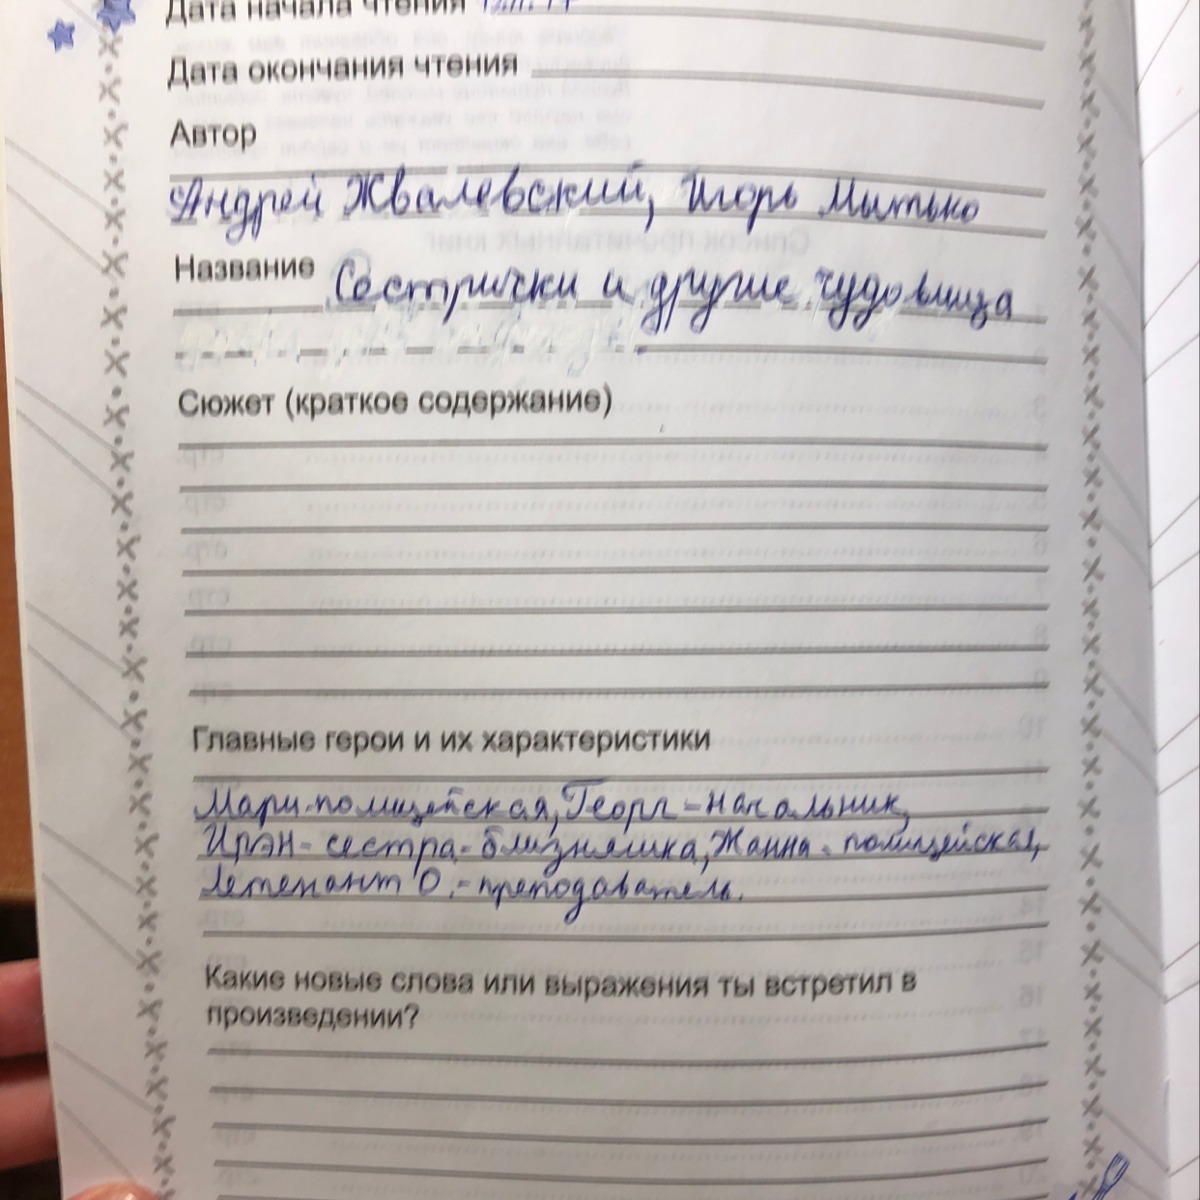 Дата начала чтения
Дата окончания чтения
Автор
Андрей Жвалевский, Игорь Мытько
Название Сестрички и другие чудовища
Сюжет (краткое содержание)
Главные герои и их характеристики
Мари-полицейская, Георг-начальник,
Ирэн-сестра-близняшка, Жанна-полицейская,
Летенант О.-преподаватель.
Какие новые слова или выражения ты встретил в
произведении?